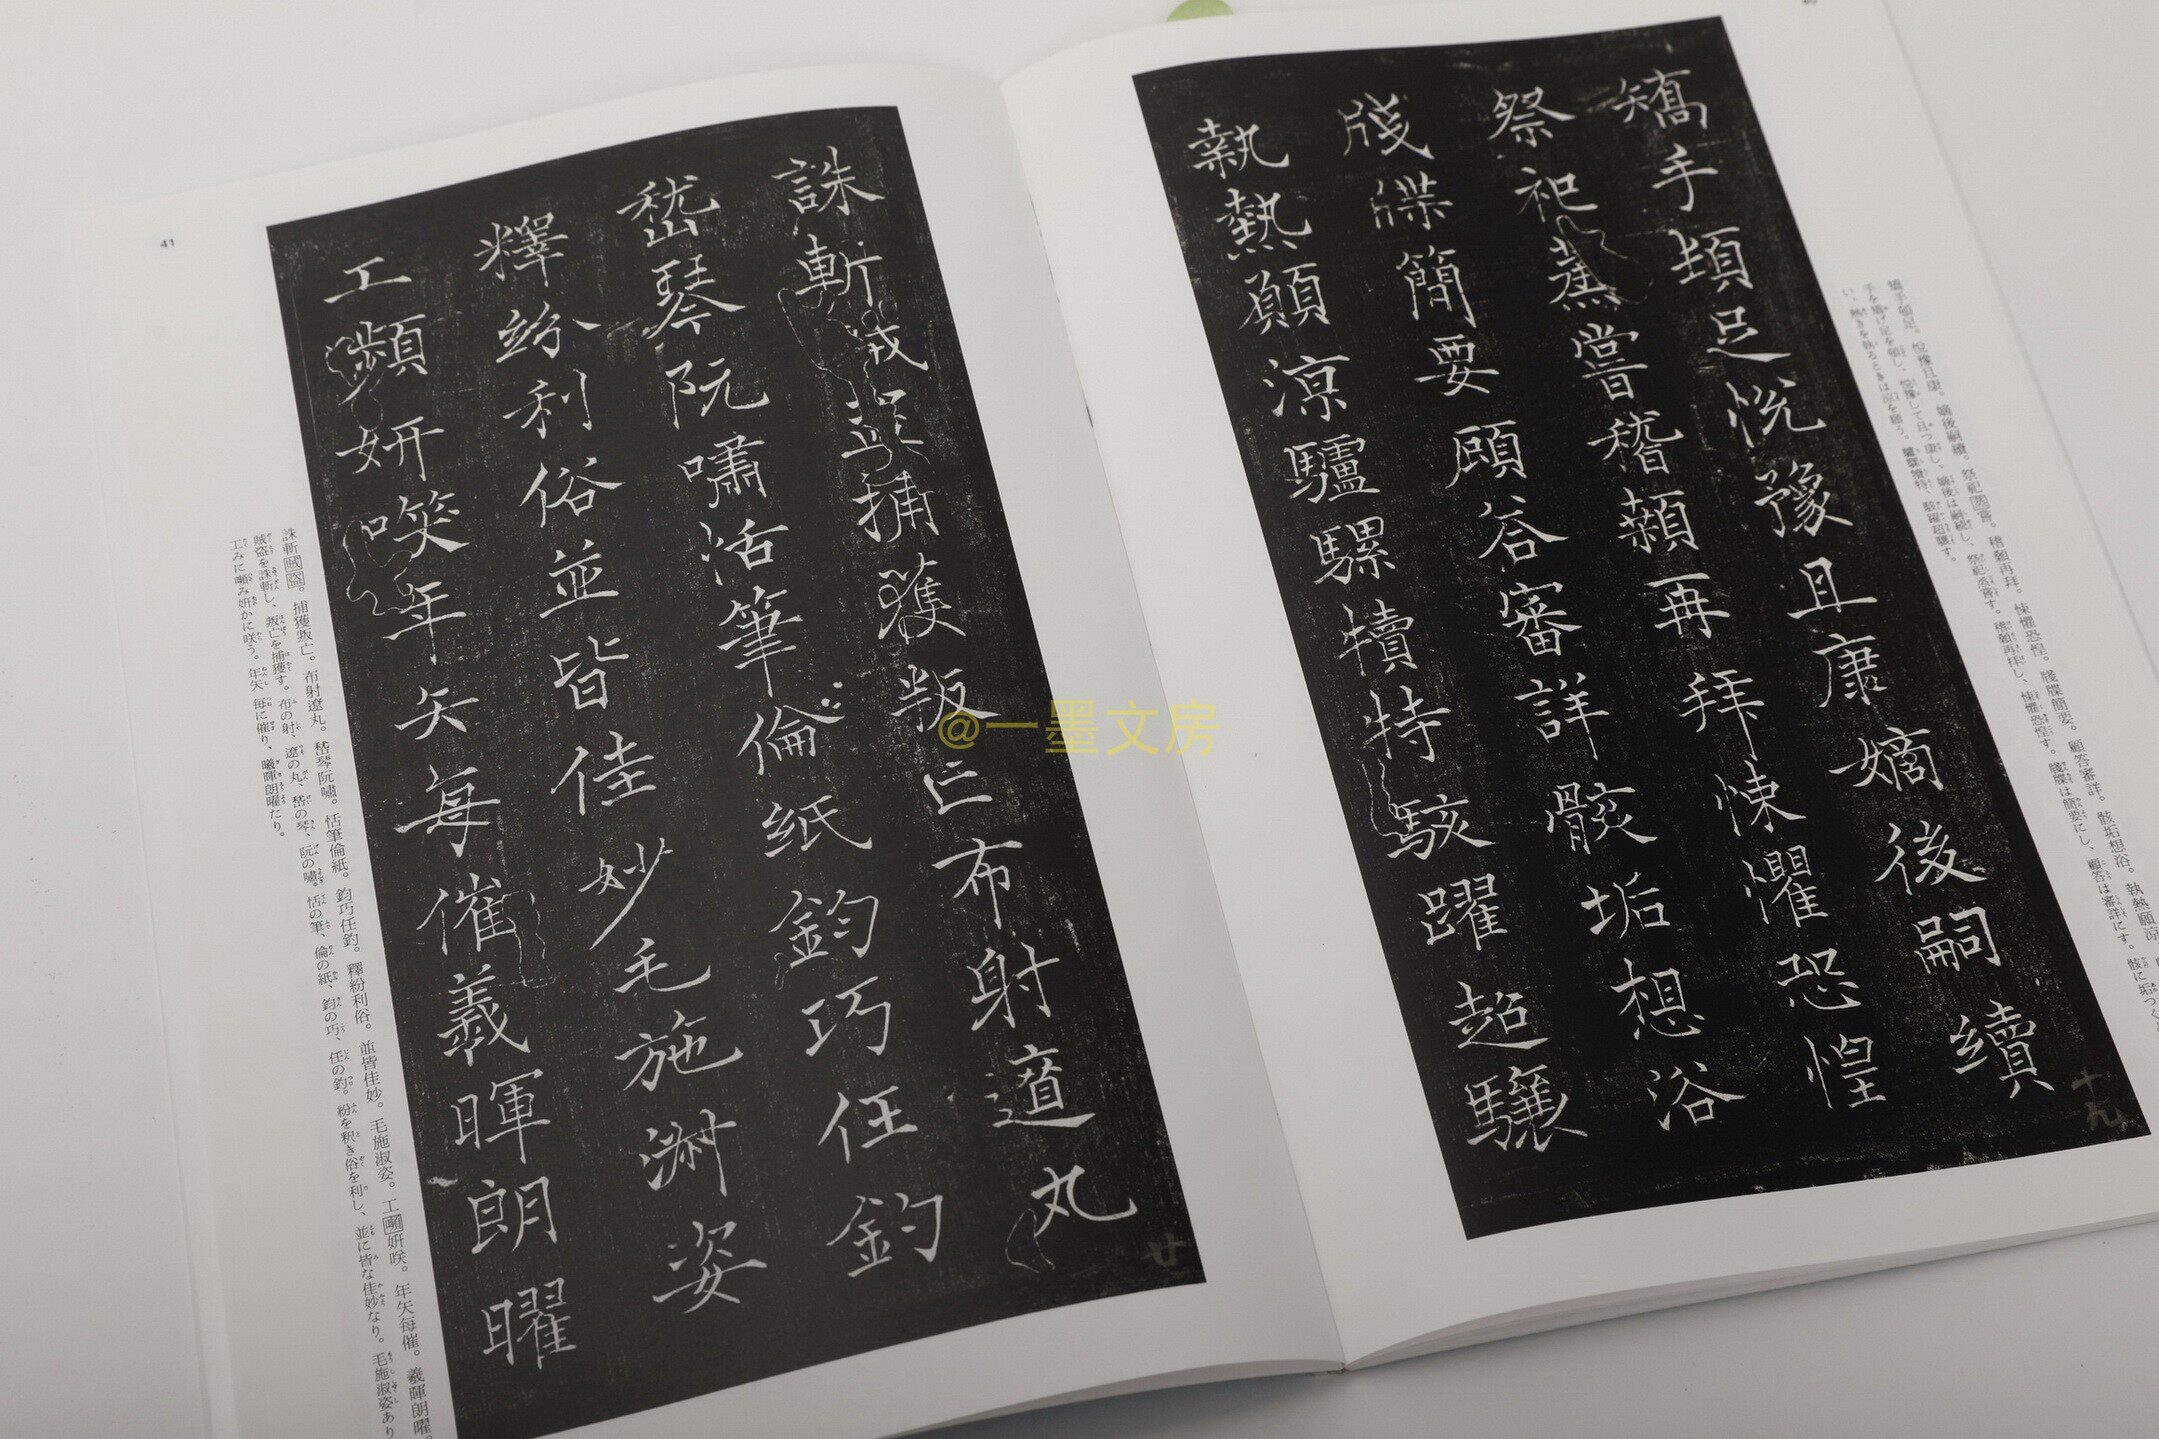 矯手頓足悦豫且康嫡後嗣續
祭祀蒸嘗稽顙再拜悚懼恐惶
牋牒簡要顧答審詳骸垢想浴
執熱願涼驢騾犢特駭躍超驤
十九
矯手頓足。悅豫且康。嫡後嗣續。祭祀蒸嘗。稽顙再拜。悚懼恐惶。牋牒簡要。顧答審詳。骸垢想浴。執熱願涼
手を矯げ足を頓し、悅豫して且つ康し。嫡後は嗣續し、祭祀蒸嘗す。稽顙再拜し、悚懼恐惶す。牋牒は簡要にし、顧答は審詳にす。骸に垢つく
い、熱きを執るときは涼を願う。驢騾犢特、駭躍超驤す。
誅斬賊盜捕獲叛亡布射遼丸
嵇琴阮嘯恬筆倫紙鈞巧任釣
釋紛利俗並皆佳妙毛施淑姿
工嚬妍咲年矢每催羲暉朗曜
廿
誅斬賊盗。捕獲叛亡。布射遼丸。嵇琴阮嘯。恬筆倫紙。鈞巧任釣。釋紛利俗。並皆佳妙。毛施淑姿。工嚬妍咲。年矢每催。羲暉朗曜。
賊盗を誅斬し、叛亡を捕獲す。布の射、遼の丸、嵇の琴、阮の嘯。恬の筆、倫の紙、鈞の巧、任の釣。紛を釈き俗を利し、並に皆な佳妙なり。毛施淑姿あり
工みに嚬み妍かに咲う。年矢 每に催り、曦暉朗曜たり。
41
@一墨文房